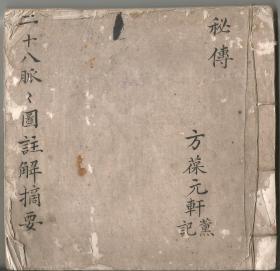 秘傳
方葆元軒薰記
二十八脈〻圖註解摘要